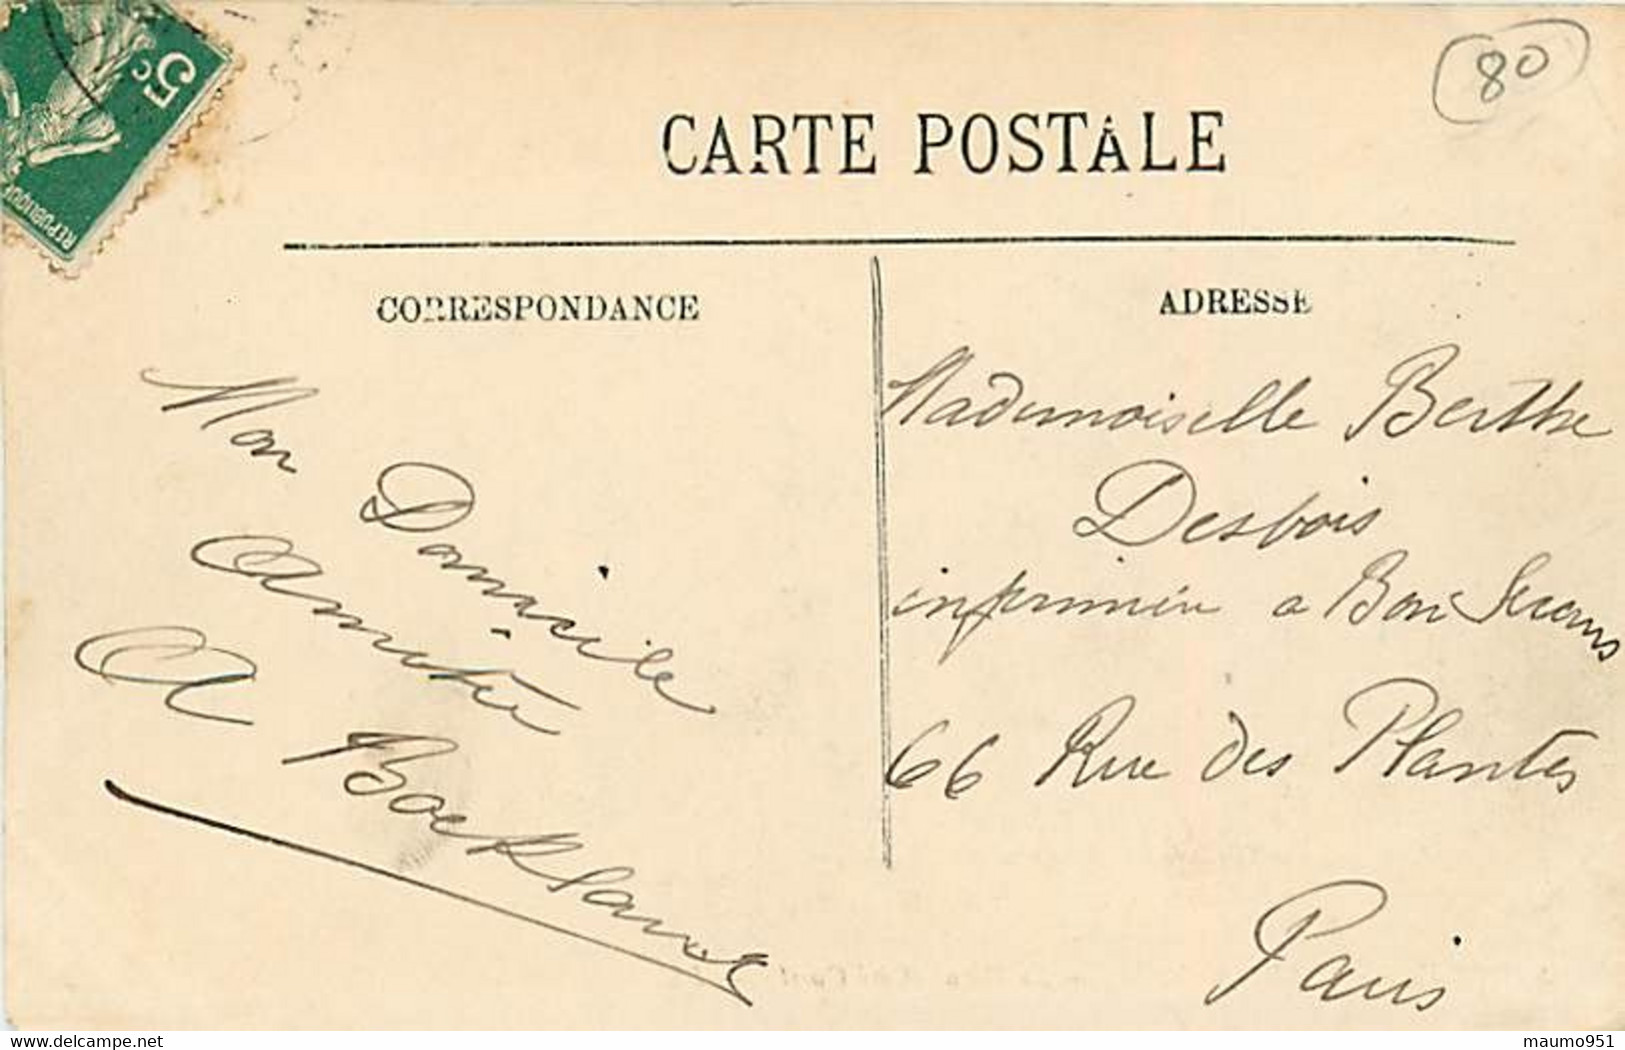 5c
REPUBLIQUE
80
CARTE POSTALE
CORRESPONDANCE
ADRESSE
Mon Domicile
Amitié
A Boeklandt
Mademoiselle Berthe
Desbois
infirmière a Bon Secours
66 Rue des Plantes
Paris
www.delcampe.net
maumo951